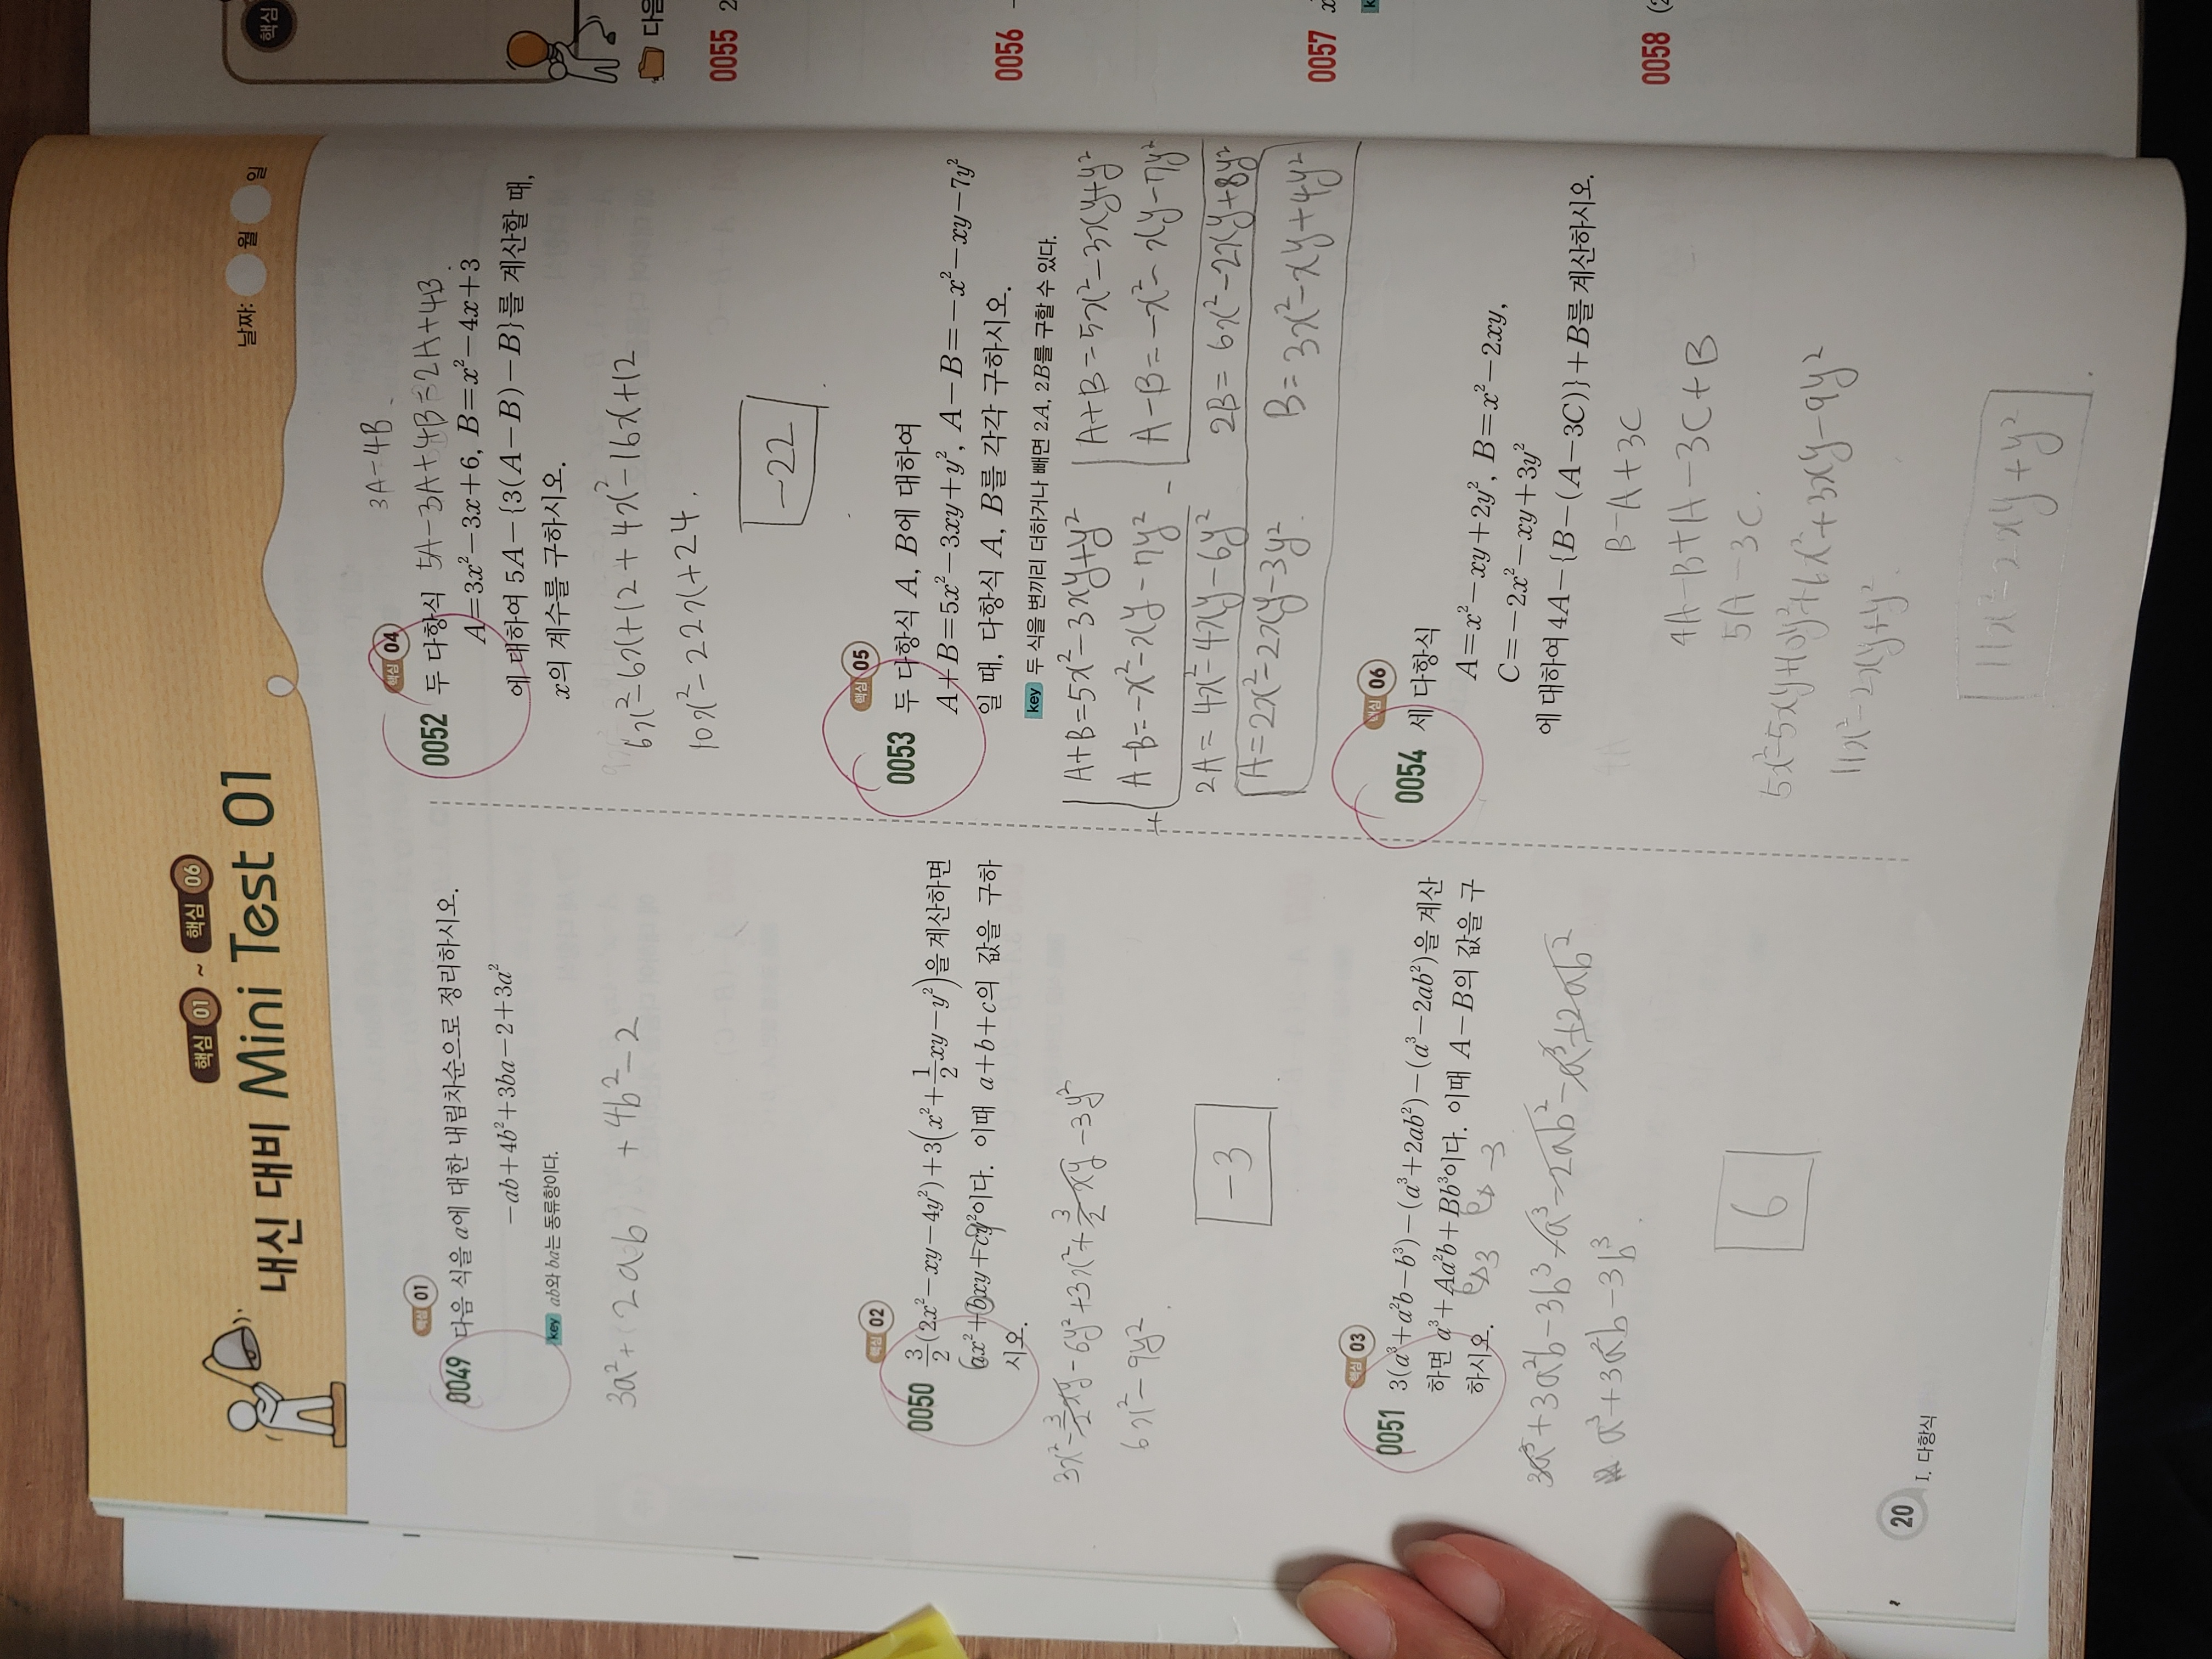 핵심 01 ~ 핵심 06
내신 대비 Mini Test 01
날짜: 월 일
핵심 01
0049 다음 식을 a에 대한 내림차순으로 정리하시오.
-ab+4b²+3ba-2+3a²
key ab와 ba는 동류항이다.
3a²+(2ab) +4b²-2
핵심 02
0050 3/2(2x²-xy-4y²)+3(x²+1/2xy-y²)을 계산하면
ax²+bxy+cy²이다. 이때 a+b+c의 값을 구하
시오.
3x²-3/2xy-6y²+3x²+3/2xy-3y²
6x²-9y²
-3
핵심 03
0051 3(a³+a²b-b³)-(a³+2ab²)-(a³-2ab²)을 계산
하면 a³+Aa²b+Bb³이다. 이때 A-B의 값을 구
하시오.
3 -3
3a³+3a²b-3b³-a³-2ab²-a³+2ab²
a³+3a²b-3b³
6
20 I. 다항식
핵심 04
3A-4B
5A-3A+4B=2A+4B
0052 두 다항식
A=3x²-3x+6, B=x²-4x+3
에 대하여 5A-{3(A-B)-B}를 계산할 때,
x의 계수를 구하시오.
6x²-6x+12+4x²-16x+12
10x²-22x+24
-22
핵심 05
0053 두 다항식 A, B에 대하여
A+B=5x²-3xy+y², A-B=-x²-xy-7y²
일 때, 다항식 A, B를 각각 구하시오.
key 두 식을 변끼리 더하거나 빼면 2A, 2B를 구할 수 있다.
A+B=5x²-3xy+y²
+ A-B=-x²-xy-7y²
2A=4x²-4xy-6y²
A=2x²-2xy-3y²
A+B=5x²-3xy+y²
- A-B=-x²-xy-7y²
2B=6x²-2xy+8y²
B=3x²-xy+4y²
핵심 06
0054 세 다항식
A=x²-xy+2y², B=x²-2xy,
C=-2x²-xy+3y²
에 대하여 4A-{B-(A-3C)}+B를 계산하시오.
B-A+3C
4A-B+A-3C+B
5A-3C
5x²-5xy+10y²+6x²+3xy-9y²
11x²-2xy+y²
11x²-2xy+y²
핵심
다음
0055 2
0056
0057 x
0058 (2